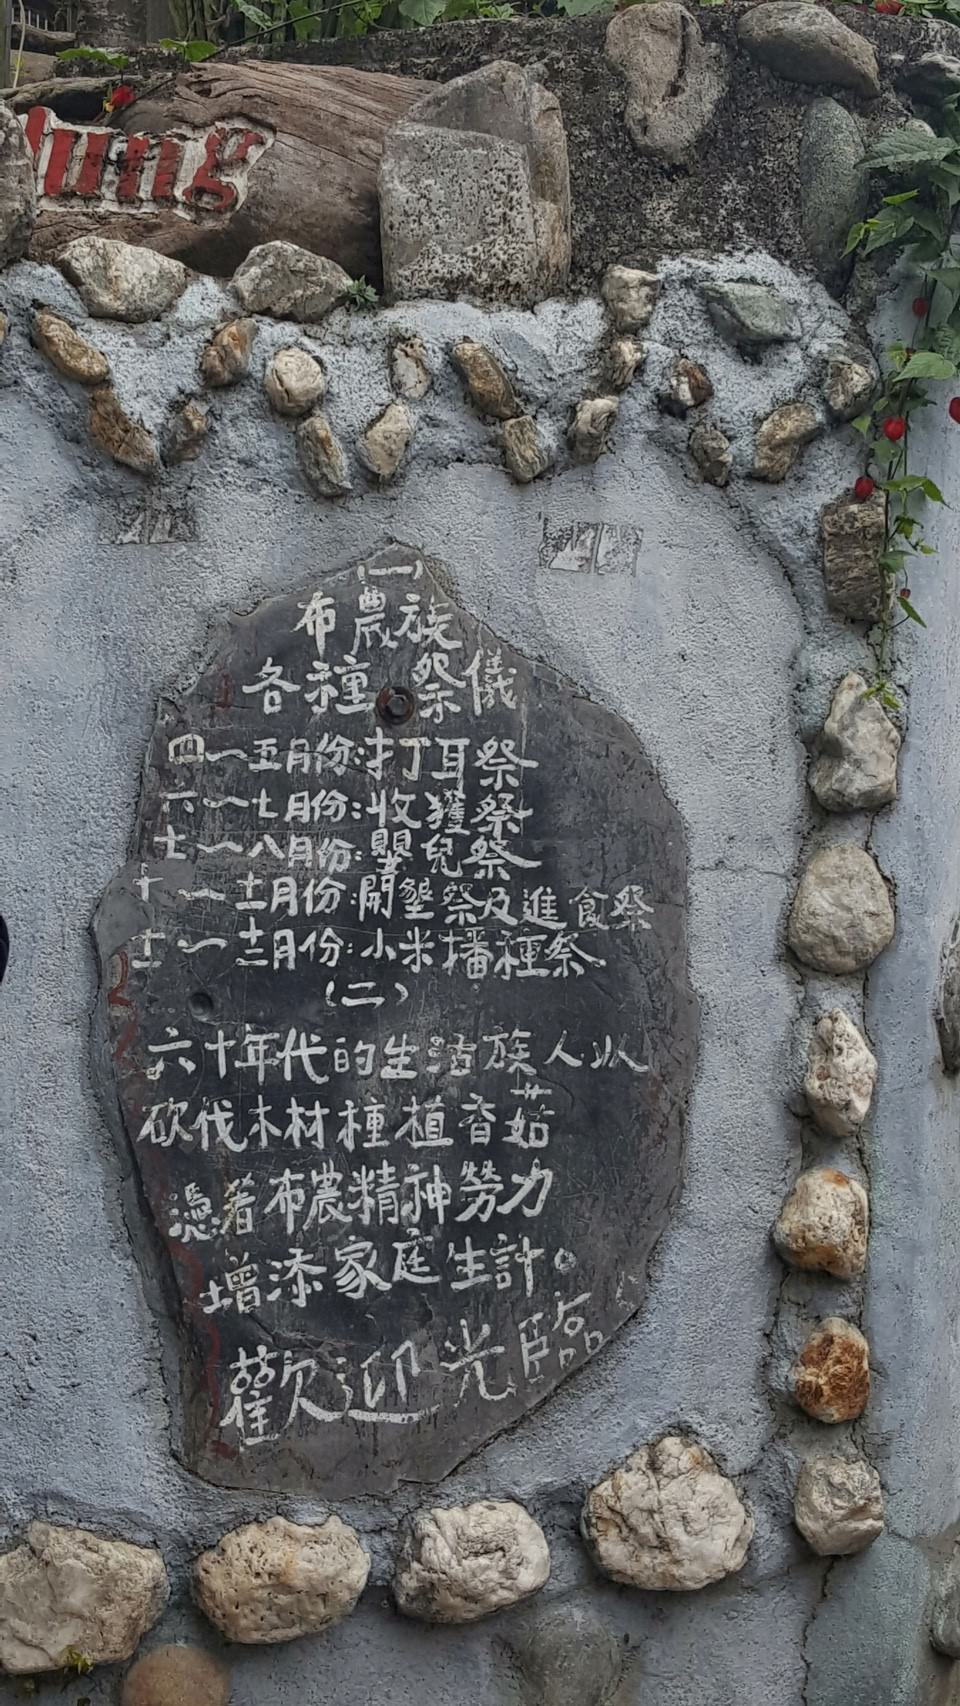 lung
(一)
布農族
各種祭儀
四~五月份:打耳祭
六~七月份:收獲祭
七~八月份:嬰兒祭
十~十一月份:開墾祭及進食祭
十一~十二月份:小米播種祭
(二)
六十年代的生活族人以
砍伐木材種植香菇
憑著布農精神勞力
增添家庭生計。
歡迎光臨